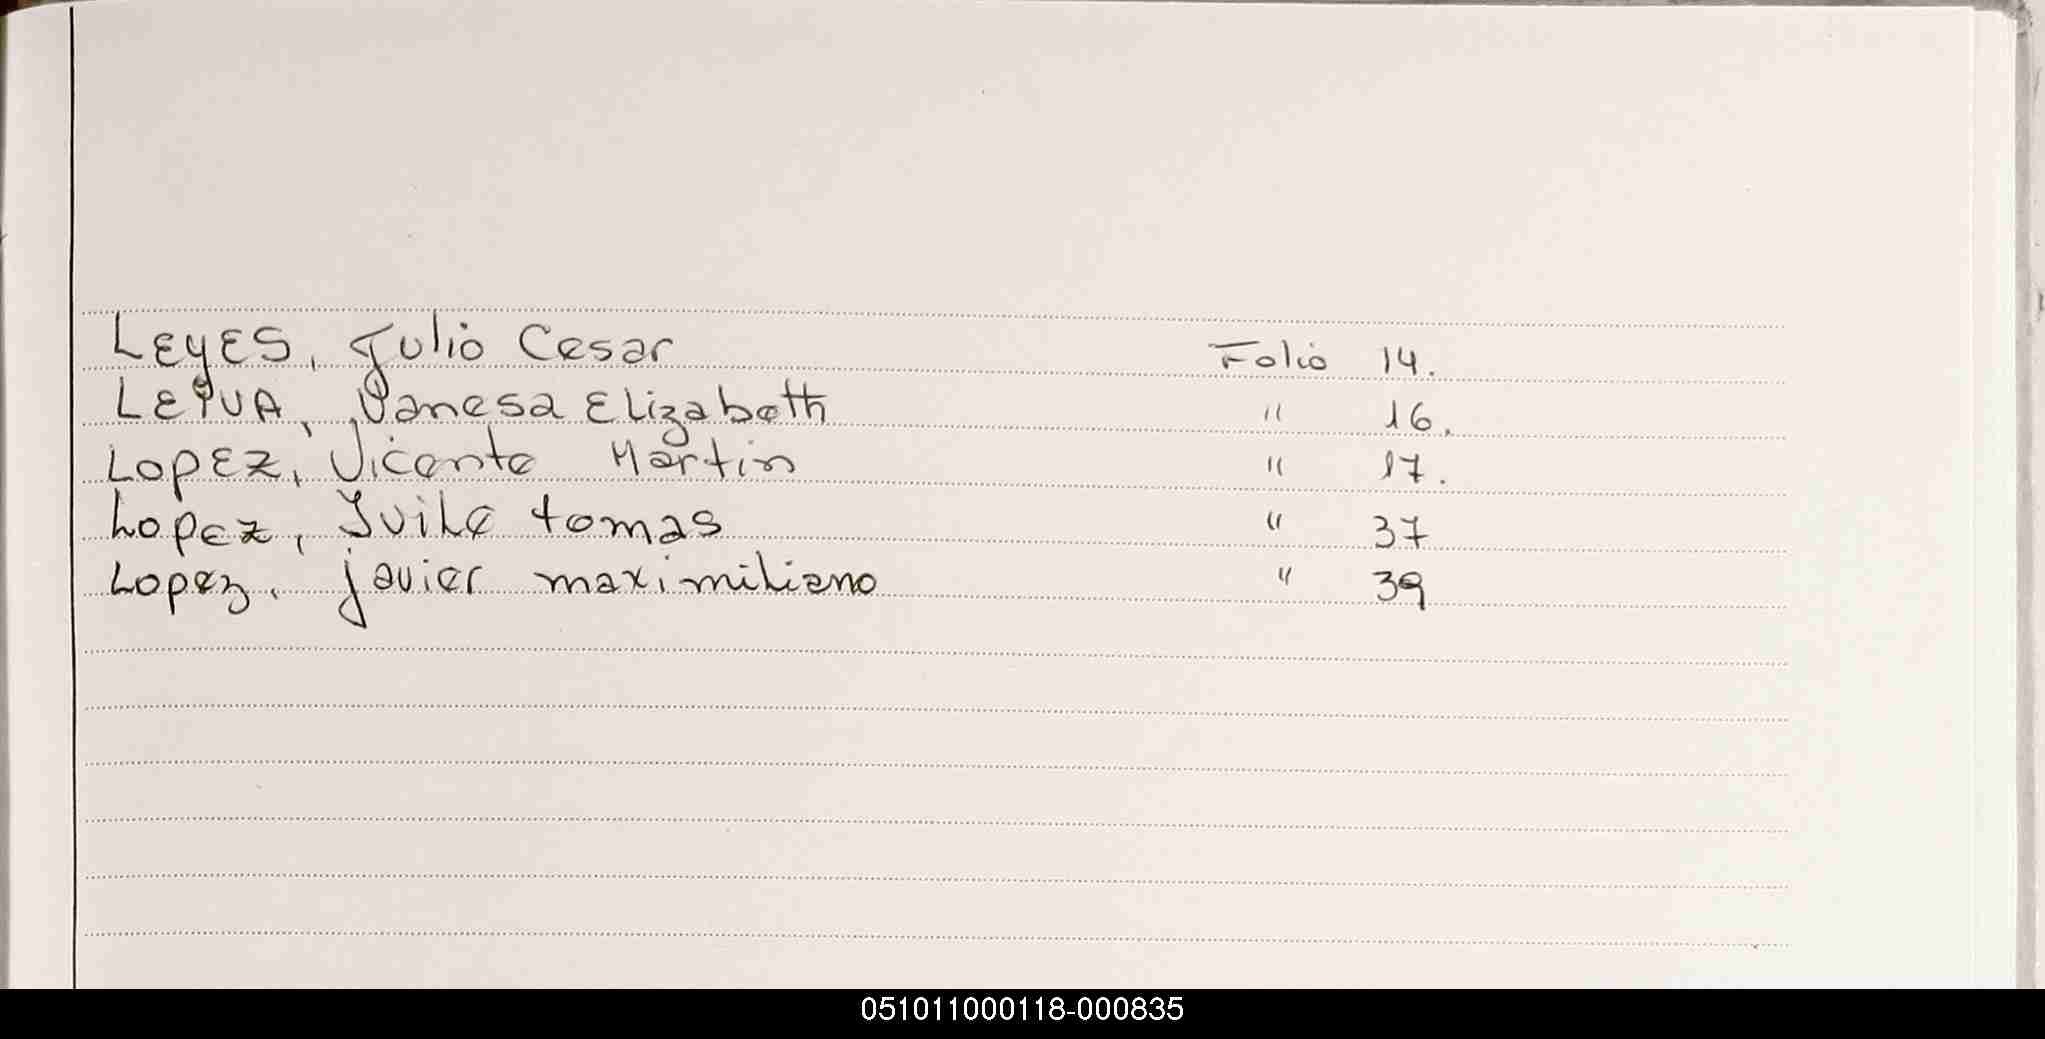 LEYES, Julio Cesar Folio 14.
LEYVA, Vanesa Elizabeth " 16.
LOPEZ, Vicente Martin " 17.
Lopez, tomas " 37
Lopez, javier maximiliano " 39
051011000118-000835